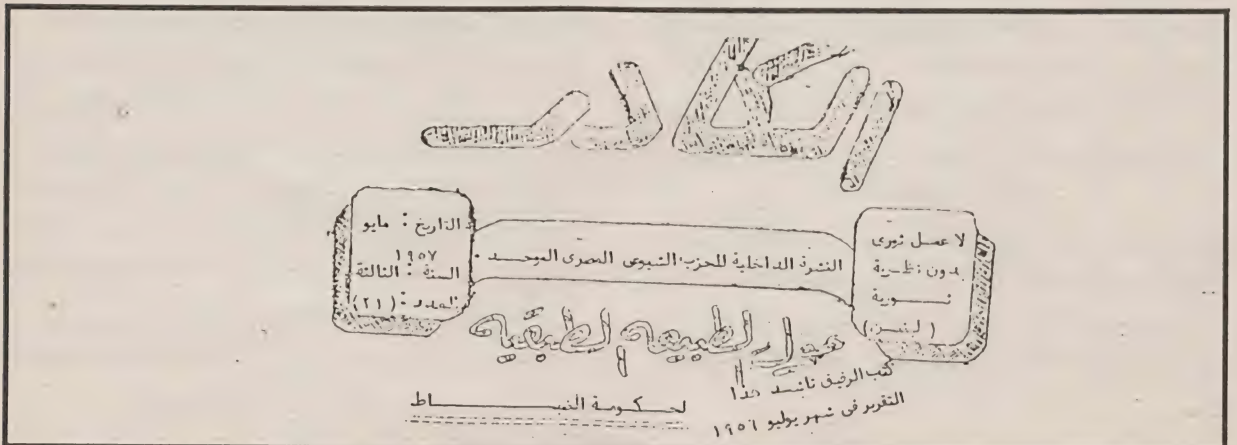 الكادر
لا عمل ثورى
بدون نظرية
ثورية
(لينين)
النشرة الداخلية للحزب الشيوعى المصرى الموحد .
التاريخ : مايو
١٩٥٧
السنة : الثالثة
العدد : (٢١)
حول الطبيعه الطبقيه
لحكومة الضباط
كتب الرفيق هذا
التقرير فى شهر يوليو ١٩٥٦